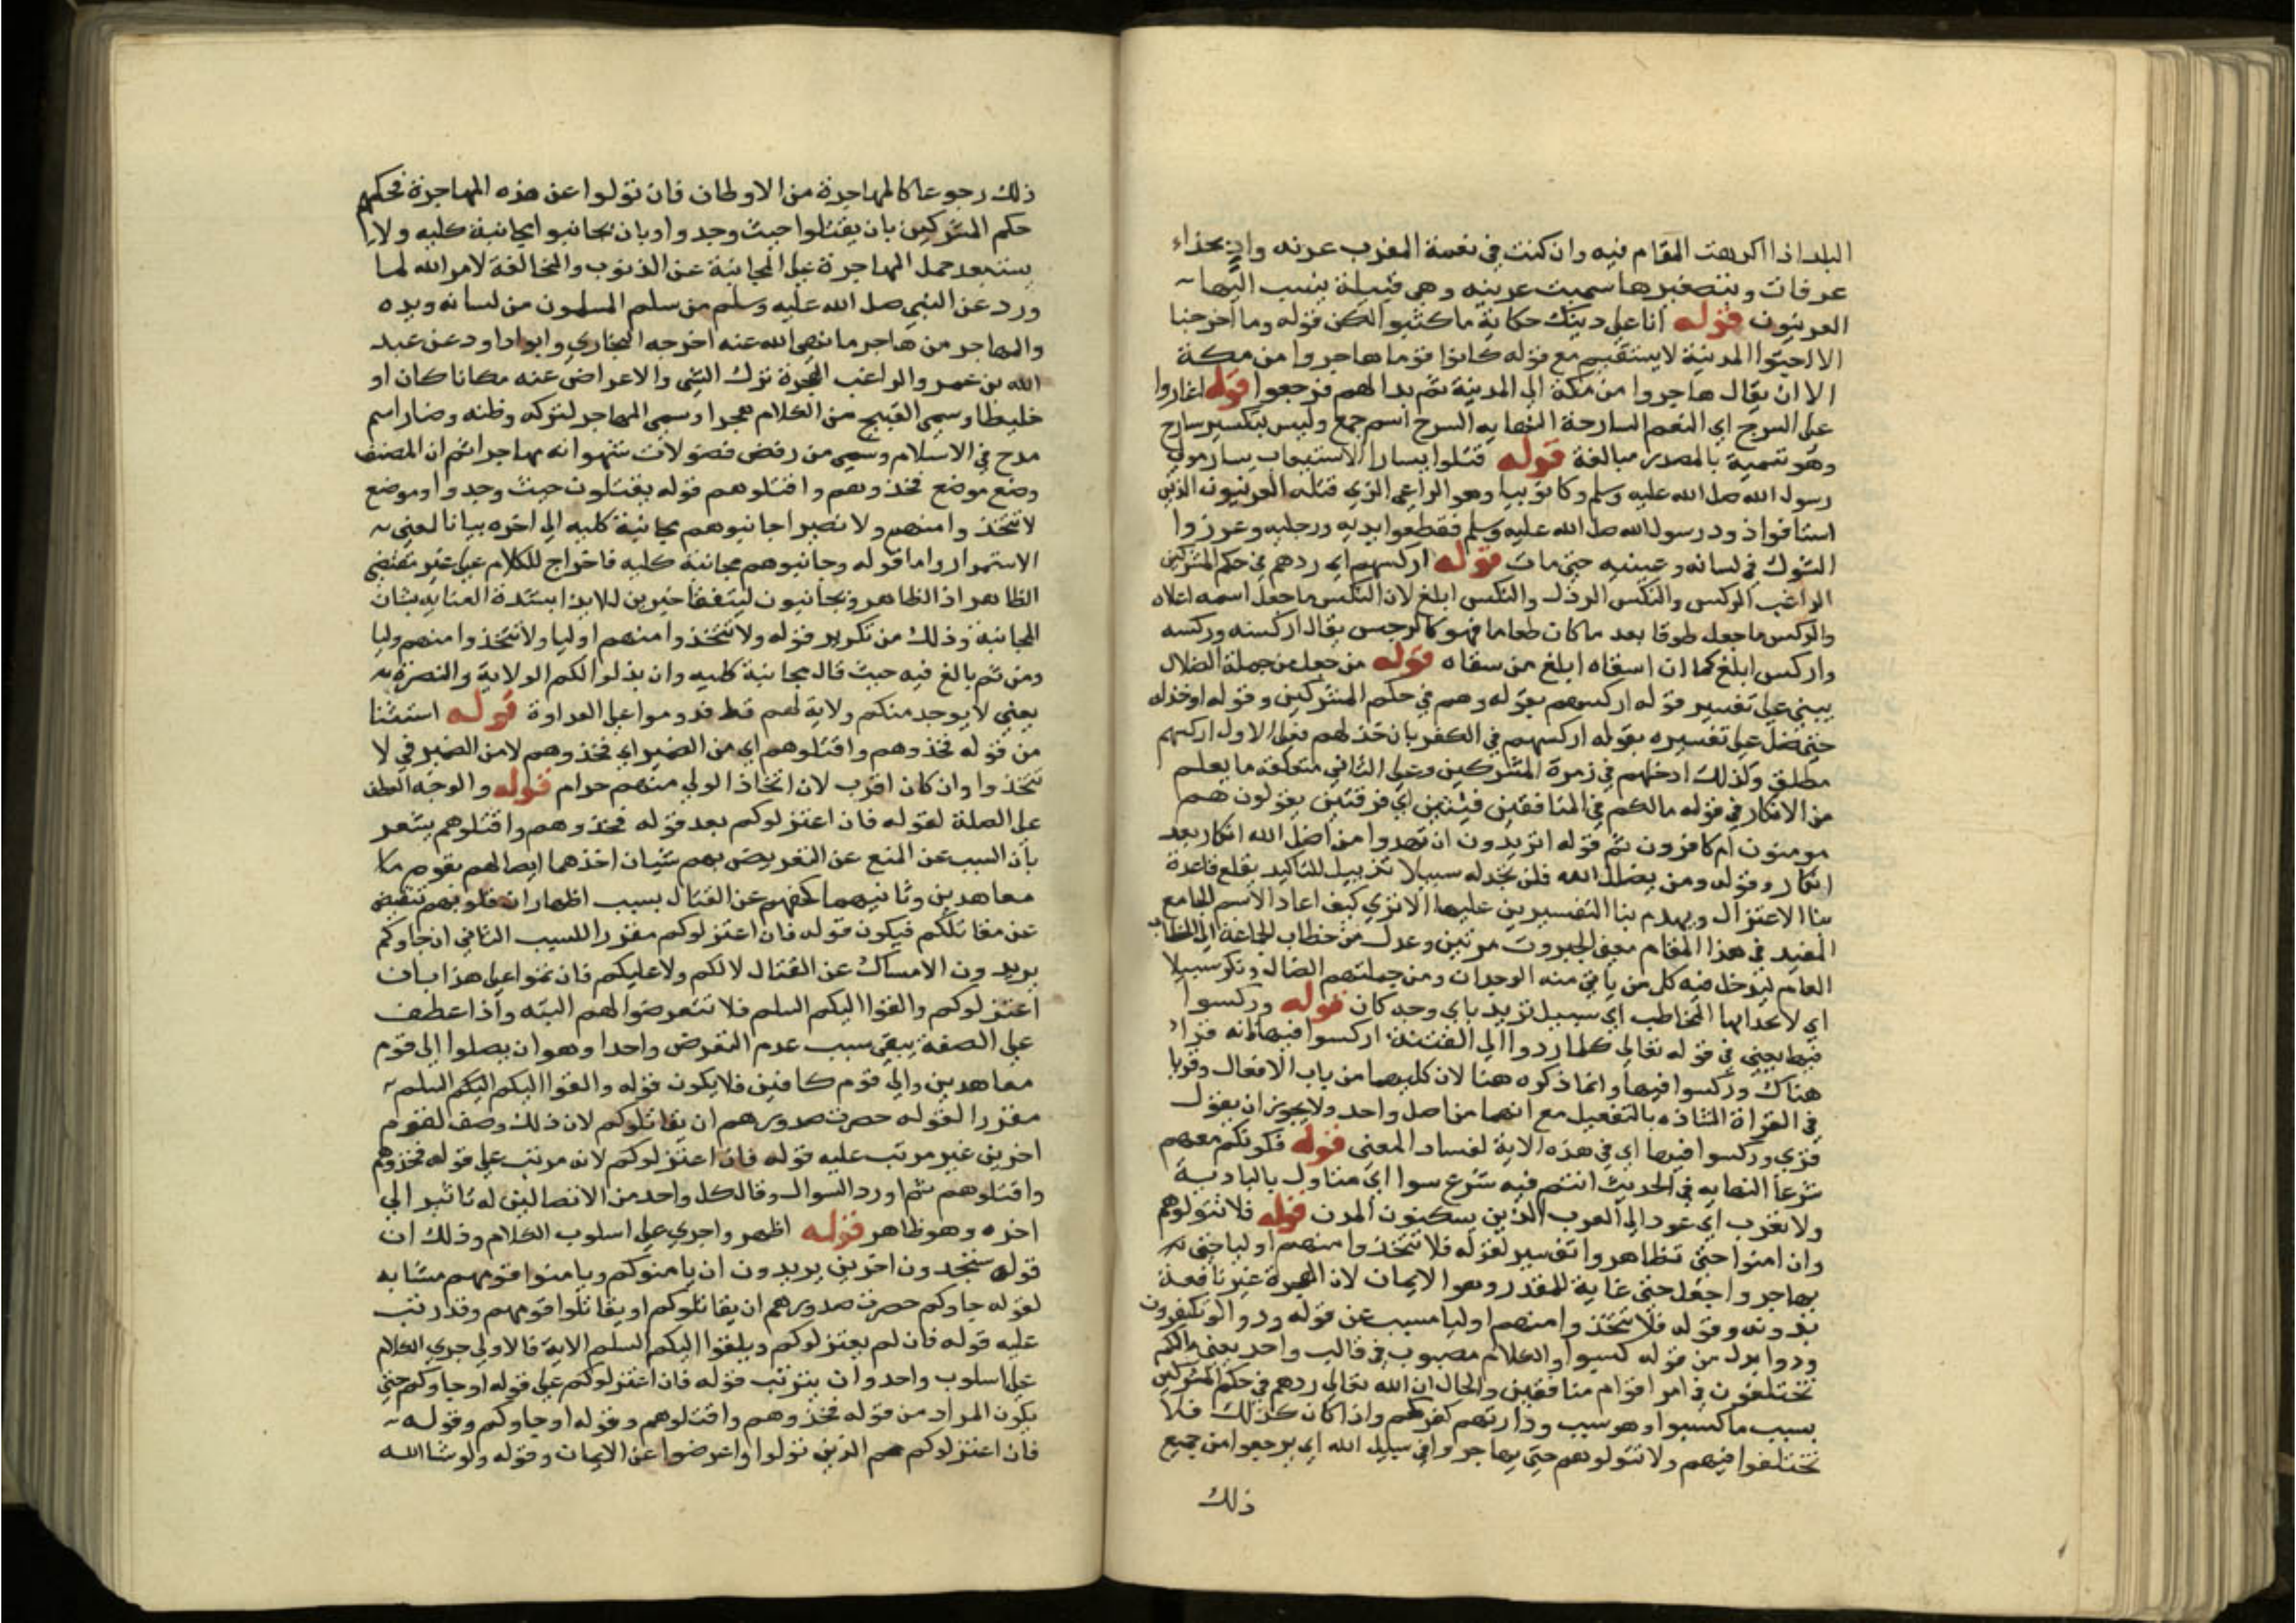 البلد اذا اكرهت المقام فيه وان كنت في نعمة المغرب عرنه واد بحذاء
عرفات وبتصغيرها سميت عرينه وهي قبيلة ينسب اليها
العرنيون قوله انا على دينك حكاية ما كتبوا لكن قوله وما اخرجنا
الا اجتوا المدينة لا يستقيم مع قوله كانوا قوما هاجروا من مكة
الا ان يقال هاجروا من مكة الى المدينة ثم بدا لهم فرجعوا قوله اغاروا
على السرح اي النعم السارحة النهايه السرح اسم جمع وليس بتكسير سارح
وهو تسمية بالمصدر مبالغة قوله قتلوا يسارا الاستيعاب يسار مولى
رسول الله صلى الله عليه وسلم وكان نوبيا وهو الراعي الذي قتله العرنيون الذين
استاقوا ذود رسول الله صلى الله عليه وسلم فقطعوا يديه ورجليه وغرزوا
الشوك في لسانه وعينيه حتى مات قوله اركسهم اي ردهم في حكم المشركين
الراغب الركس والنكس الرذل والنكس ابلغ لان النكس ما جعل اسفله اعلاه
والركس ما جعل طوفا بعد ما كان طعاما فهو كالرجس يقال اركسته وركسه
واركس ابلغ كما ان اسقاه ابلغ من سقاه قوله من جعل من جملة الضلال
يبنى على تفسير قوله اركسهم بقوله وهم في حكم المشركين وقوله او خذله
حتى ضل على تفسيره بقوله اركسهم في الكفر بان خذلهم فعلى الاول اركسهم
مطلق وكذلك ادخلهم في زمرة المشركين وعلى الثاني متعلقه ما يعلم
من الانكار في قوله مالكم في المنافقين فيتين اي فرقتين يقولون هم
مومنون ام كافرون ثم قوله اتريدون ان تهدوا من اضل الله انكار بعد
انكار وقوله ومن يضلل الله فلن تجد له سبيلا تذييل للتاكيد يقلع قاعدة
بنا الاعتزال ويهدم بنا التفسيرين عليها الا ترى كيف اعاد الاسم الجامع
المفيد في هذا المقام معنى الجبروت مرتين وعدل من خطاب الجماعة الى الخطاب
العام ليدخل فيه كل من ياتي منه الوجدان ومن جملتهم الضال ونكر سبيلا
اي لا تجد ايها المخاطب اي سبيل تريد باي وجه كان قوله وركسوا
فيها يعني في قوله تعالى كلما ردوا الى الفتنة اركسوا فيها انه قرا
هناك وركسوا فيها وانما ذكره هنا لان كليهما من باب الافعال وقريا
في القراة الشاذه بالتفعيل مع انهما من اصل واحد ولا يجوز ان يقول
قرى وركسوا فيها اي في هذه الاية لفساد المعنى قوله فكونكم معهم
شرعا النهايه في الحديث انتم فيه شرع سوا اي متناول بالبادية
ولا تغرب اي عود الى العرب الذين يسكنون المدن قوله فلا تتولوهم
وان امنوا حتى تظاهروا تفسير لقوله فلا تتخذوا منهم اوليا حتى
يهاجروا جعل حتى غاية للمقدر وهو الايمان لان الهجرة غير نافعة
بدونه وقوله فلا تتخذوا منهم اوليا مسبب عن قوله ودوا لو تكفرون
ودوا بدل من قوله كسبوا والكلام مصبوب في قالب واحد يعني مالكم
تختلفون في امر اقوام منافقين والحال ان الله تعالى ردهم في حكم المشركين
بسبب ما كسبوا وهو سبب ودادتهم كفركم واذا كان كذلك فلا
تختلفوا فيهم ولا تتولوهم حتى يهاجروا في سبيل الله اي يرجعوا من جميع
ذلك
ذلك رجوعا كالمهاجرة من الاوطان فان تولوا عن هذه المهاجرة فحكمهم
حكم المشركين بان يقتلوا حيث وجدوا وبان تجانبوا مجانبة كليه ولا
يستبعد حمل المهاجرة على المجانبة عن الذنوب والمخالفة لامر الله لما
ورد عن النبي صلى الله عليه وسلم من سلم المسلمون من لسانه ويده
والمهاجر من هاجر ما نهى الله عنه اخرجه البخاري وابو داود عن عبد
الله بن عمر والراغب الهجرة ترك الشي والاعراض عنه مكانا كان او
خليطا وسمي القبيح من الكلام هجرا وسمى المهاجر لتركه وطنه وصار اسم
مدح في الاسلام وسمي من رفض فضولات شهواته مهاجرا ثم ان المصنف
وضع موضع فخذوهم واقتلوهم قوله يقتلون حيث وجدوا وموضع
لا تتخذوا منهم ولا نصيرا جانبوهم مجانبة كليه الى اخره بيانا لمعنى
الاستمرار واما قوله وجانبوهم مجانبة كليه فاخراج للكلام على غير مقتضى
الظاهر اذ الظاهر ويجانبون ليتفقا خبرين للايذان بشدة العنايه بشان
المجانبة وذلك من تكرير قوله ولا تتخذوا منهم اوليا ولا تتخذوا منهم وليا
ومن ثم بالغ فيه حيث قال مجانبة كليه وان بذلوا لكم الولاية والنصرة
يعني لا يوجد منكم ولاية لهم قط فدوموا على العداوة قوله استثنا
من قوله فخذوهم واقتلوهم اي من الضمير اي فخذوهم لا من الضمير في لا
تتخذوا وان كان اقرب لان اتخاذ الولي منهم حرام قوله والوجه العطف
على الصلة لقوله فان اعتزلوكم بعد قوله فخذوهم واقتلوهم يشعر
بان السبب عن المنع عن التعريض بهم شيان احدهما ايصالهم بقوم
معاهدين وثانيهما كفهم عن القتال بسبب اظهار ان قلوبهم تنقبض
عن مقاتلتكم فيكون قوله فان اعتزلوكم مقررا للسبب الثاني ان جاوكم
يريدون الامساك عن القتال لا لكم ولا عليكم فان تموا على هذا بان
اعتزلوكم والقوا اليكم السلم فلا تتعرضوا لهم البته واذا عطف
على الصفة يبقى سبب عدم التعرض واحدا وهو ان يصلوا الى قوم
معاهدين والى قوم كافين فلا يكون قوله والقوا اليكم اليكم السلم
مقررا لقوله حصرت صدورهم ان يقاتلوكم لان ذلك وصف لقوم
اخرين غير مرتب عليه قوله فان اعتزلوكم لانه مرتب على قوله فخذوهم
واقتلوهم ثم اورد السوال وقال كل واحد من الاتصالين له تاثير الى
اخره وهو ظاهر قوله اظهر واجرى على اسلوب الكلام وذلك ان
قوله ستجدون اخرين يريدون ان يامنوكم ويامنوا قومهم مشابه
لقوله جاوكم حصرت صدورهم ان يقاتلوكم او يقاتلوا قومهم وقد رتب
عليه قوله فان لم يعتزلوكم ويلقوا اليكم السلم الاية فالاولى جري الكلام
على اسلوب واحد وان يترتب قوله فان اعتزلوكم على قوله او جاوكم حتى
يكون المراد من قوله فخذوهم واقتلوهم وقوله او جاوكم وقوله
فان اعتزلوكم هم الذين تولوا واعرضوا عن الايمان وقوله ولو شا الله